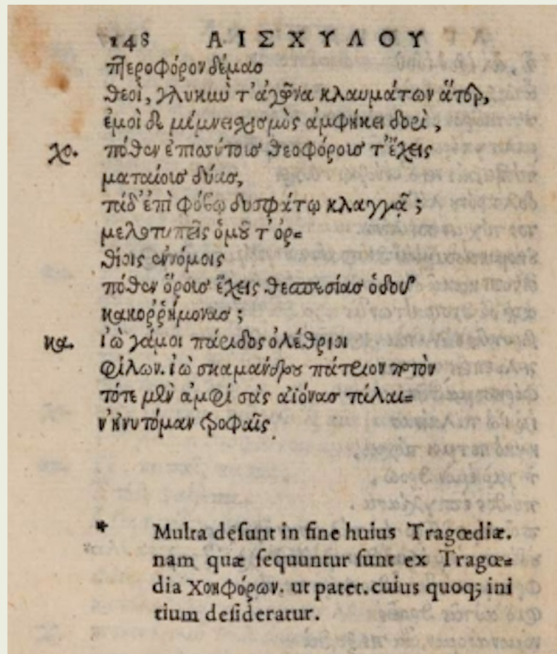 148 ΑΙΣΧΥΛΟΥ
πτεροφόρον δέμασ
θεοὶ, γλυκιὺ τ' ἀγῶνα κλαυμάτων ἄτερ,
ἐμοὶ δὲ μίμνει σχισμὸς ἀμφήκει δορὶ,
χο. πόθεν ἐπισσύτοισ θεοφόροισ τ' ἔχεις
ματαίοισ δύασ,
τάδ' ἐπὶ φόβῳ δυσφάτῳ κλαγγᾷ ;
μελοτυπεῖς ὁμοῦ τ' ὀρ=
θίοις ἐννόμοις
πόθεν ὅροισ ἔχεις θεσπεσίασ ὁδοῦ
κακορρήμονασ ;
κα. ἰὼ γάμοι πάριδος ὀλέθριοι
φίλων. ἰὼ σκαμάνδρου πάτριον ποτὸν
τότε μὲν ἀμφὶ σὰς ἀϊόνασ τάλαι=
ν' ἠνυτόμαν τροφαῖς
* Multa desunt in fine huius Tragœdiæ.
nam quæ sequuntur sunt ex Tragœ=
dia Χοηφόρων. ut patet. cuius quoq; ini
tium desideratur.